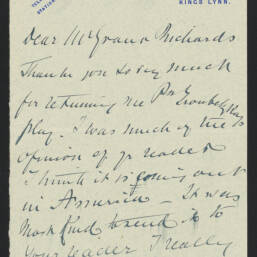 TEL
STATION
KINGS LYNN.
Dear Mr Grant Richards
Thank you so very much
for returning me Pss Troubetzkoy's
play. I was much of the
opinion of yr reader
I think it is coming out
in America – It was
most kind to send it to
your reader I really